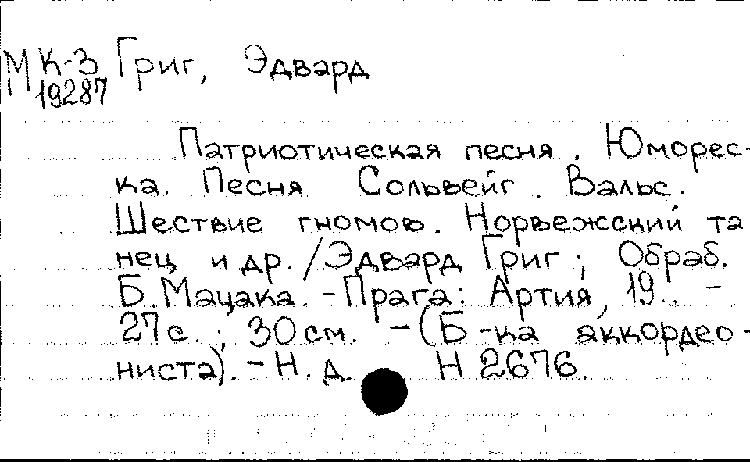 МК-3 Григ, Эдвард
19287
Патриотическая песня. Юморес-
ка. Песня Сольвейг. Вальс.
Шествие гномов. Норвежский та
нец и др. / Эдвард Григ; Обраб.
Б. Мацака. - Прага: Артия, 19.. -
27с.; 30см. - (Б-ка аккордео-
ниста). - Н. д. Н 2676.